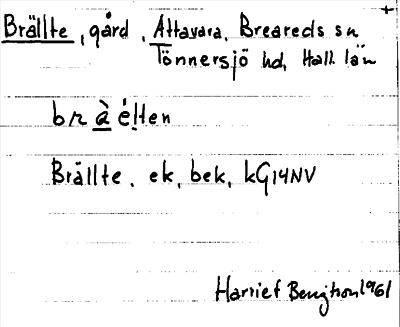 Brällte, gård, Attavara, Breareds sn
Tönnersjö hd, Hall. län
bràélten
Brällte, ek, bek, kG14NV
Harriet Bengtson 1961